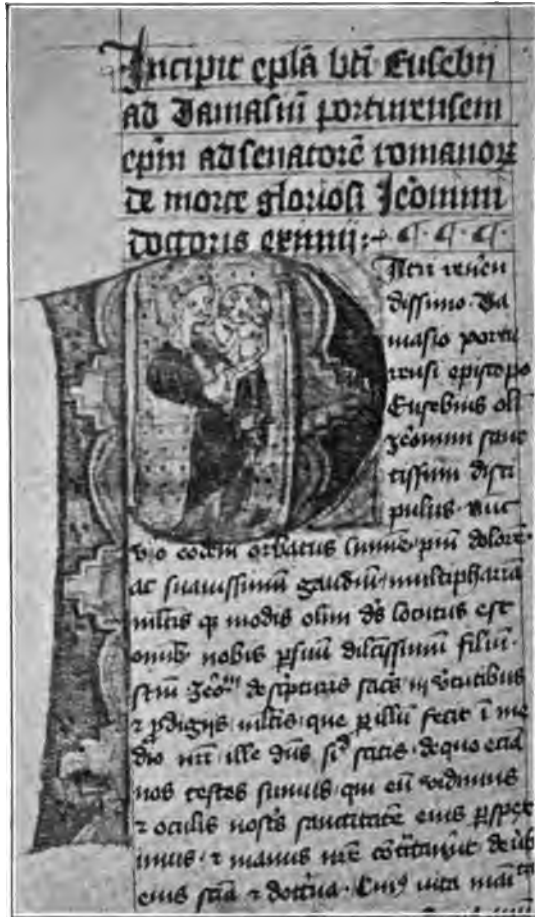 Incipit epl̄a bt̄i Eusebij
ad Damasiū portuensem
ep̄m ad senatorē romanorꝝ
de morte gloriosi Jeōnimi
doctoris eximij:
Atri reuen
dissimo Da
masio portu
ensi episcopo
Eusebius oli
Jeōnimi sanc
tissimi disci
pulus nuc
v̄o eodem orbatus lumīe piū dolorē
ac suauissimū gaudiū multipharia
mltis qꝫ modis olim ds̄ locutus est
omībꝫ nobis ꝑ suū dilc̄issimū filiū
sc̄m Jeō de sc̄pturis sac̄s in v̄tutibus
⁊ ꝓdigijs mltis que ꝑ illū fecit ī me
dio nr̄i ille dn̄s sic̄ scitis de quo eciā
nos testes sumus qui eū vidimus
⁊ oculis nost̄s sanctitatē eius ꝑspex
imus ⁊ manus nr̄e cōtractauerūt de ūb
eius scīa ⁊ doct̄na Eiuꝰ uita